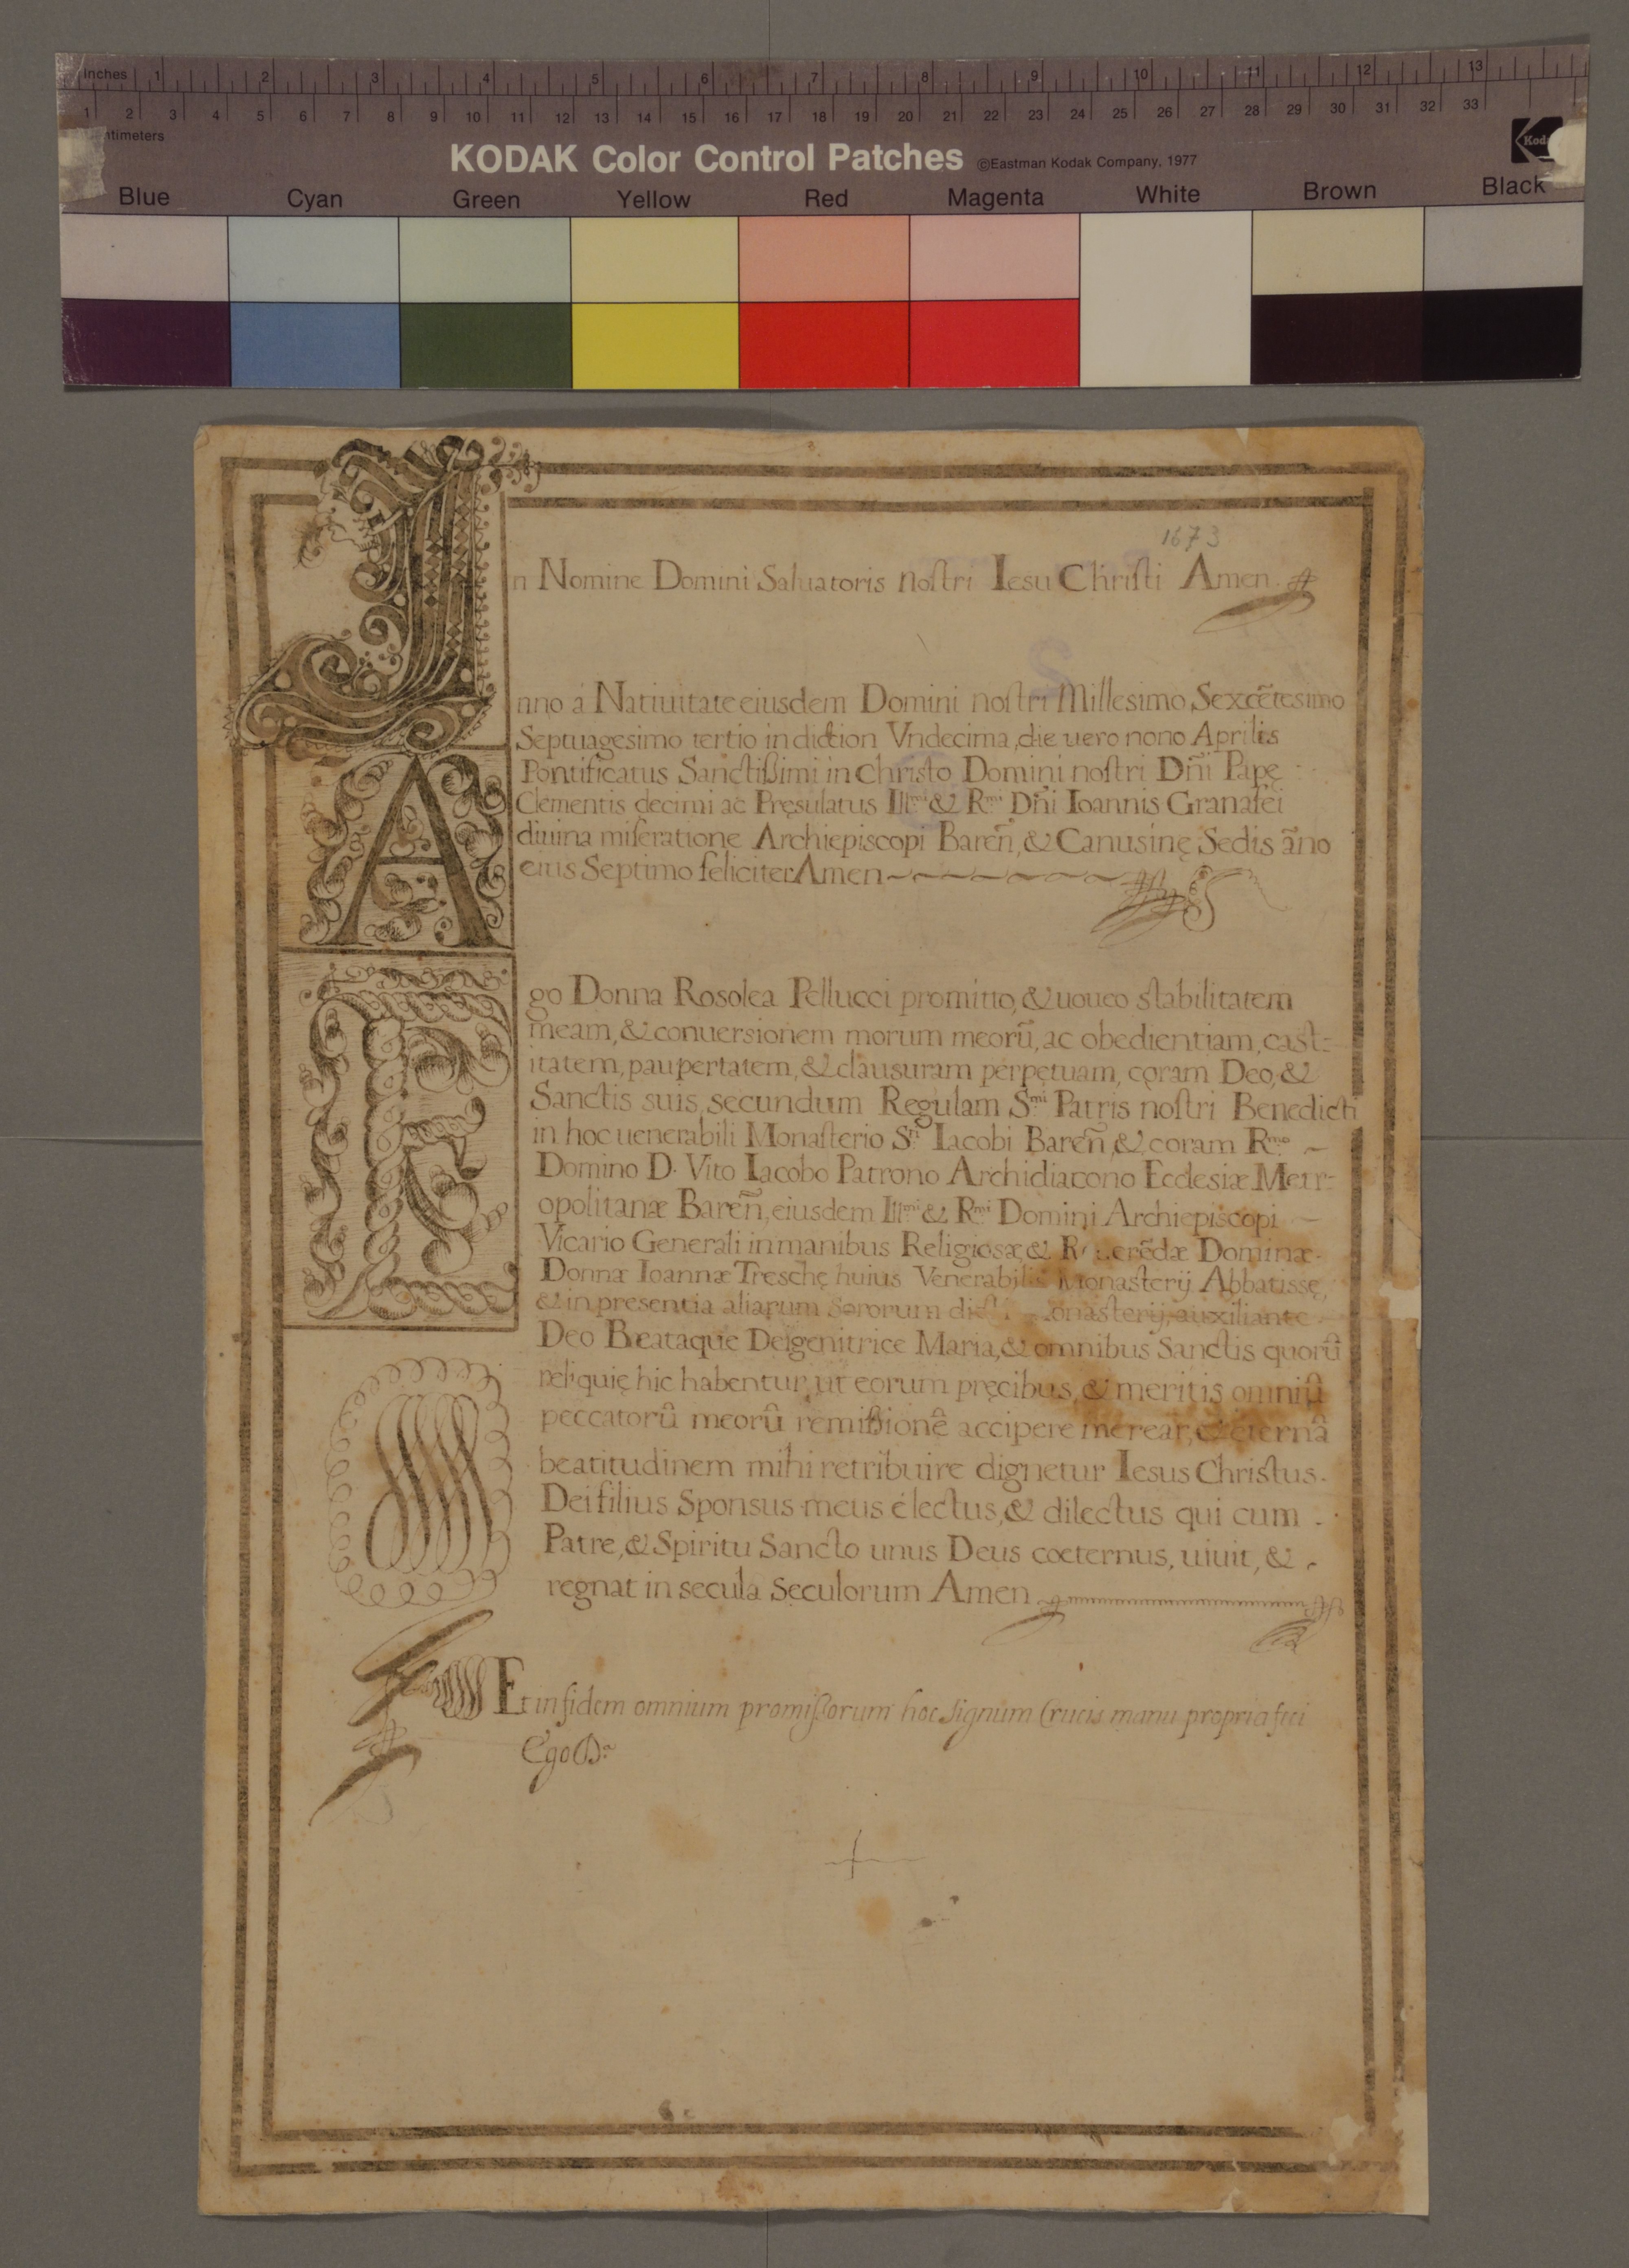 Inches 1 2 3 4 5 6 7 8 9 10 11 12 13
1 2 3 4 5 6 7 8 9 10 11 12 13 14 15 16 17 18 19 20 21 22 23 24 25 26 27 28 29 30 31 32 33
ntimeters
KODAK Color Control Patches ©Eastman Kodak Company, 1977
Kod
Blue Cyan Green Yellow Red Magenta White Brown Black
1673
In Nomine Domini Saluatoris nostri Iesu Christi Amen
2
Anno á Natiuitate eiusdem Domini nostri Millesimo Sexcẽtesimo
Septuagesimo tertio indiction Vndecima, die uero nono Aprilis
Pontificatus Sanctißimi in Christo Domini nostri Dñi Papę
Clementis decimi ac Pręsulatus Ill.mi & R.mi Dñi Ioannis Granafei
diuina miseratione Archiepiscopi Bareñ, & Canusinę Sedis ãno
eius Septimo feliciter Amen
Ego Donna Rosolea Pellucci promitto, & uoueo stabilitatem
meam, & conuersionem morum meorũ, ac obedientiam, cast:
itatem, paupertatem, & clausuram perpętuam, coram Deo, &
Sanctis suis, secundum Regulam S.mi Patris nostri Benedicti
in hoc uenerabili Monasterio S.ti Iacobi Bareñ, & coram R.mo
Domino D. Vito Iacobo Patrono Archidiacono Ecclesiæ Metr:
opolitanæ Bareñ, eiusdem Ill.mi & R.mi Domini Archiepiscopi
Vicario Generali in manibus Religiosæ & Reuerẽdæ Dominæ
Donnæ Ioannæ Treschę huius Venerabilis Monasterij Abbatissę,
& in presentia aliarum Sororum dicti Monasterij, auxiliante
Deo Beataque Deigenitrice Maria, & omnibus Sanctis quorũ
reliquię hic habentur, ut eorum pręcibus, & meritis omniũ
peccatorũ meorũ remißionẽ accipere merear, & eternã
beatitudinem mihi retribuire dignetur Iesus Christus.
Dei filius Sponsus meus électus, & dilectus qui cum
Patre, & Spiritu Sancto unus Deus coeternus, uiuit, &
regnat in secula Seculorum Amen
Et in fidem omnium promissorum hoc signum Crucis manu propria feci
Ego D.a